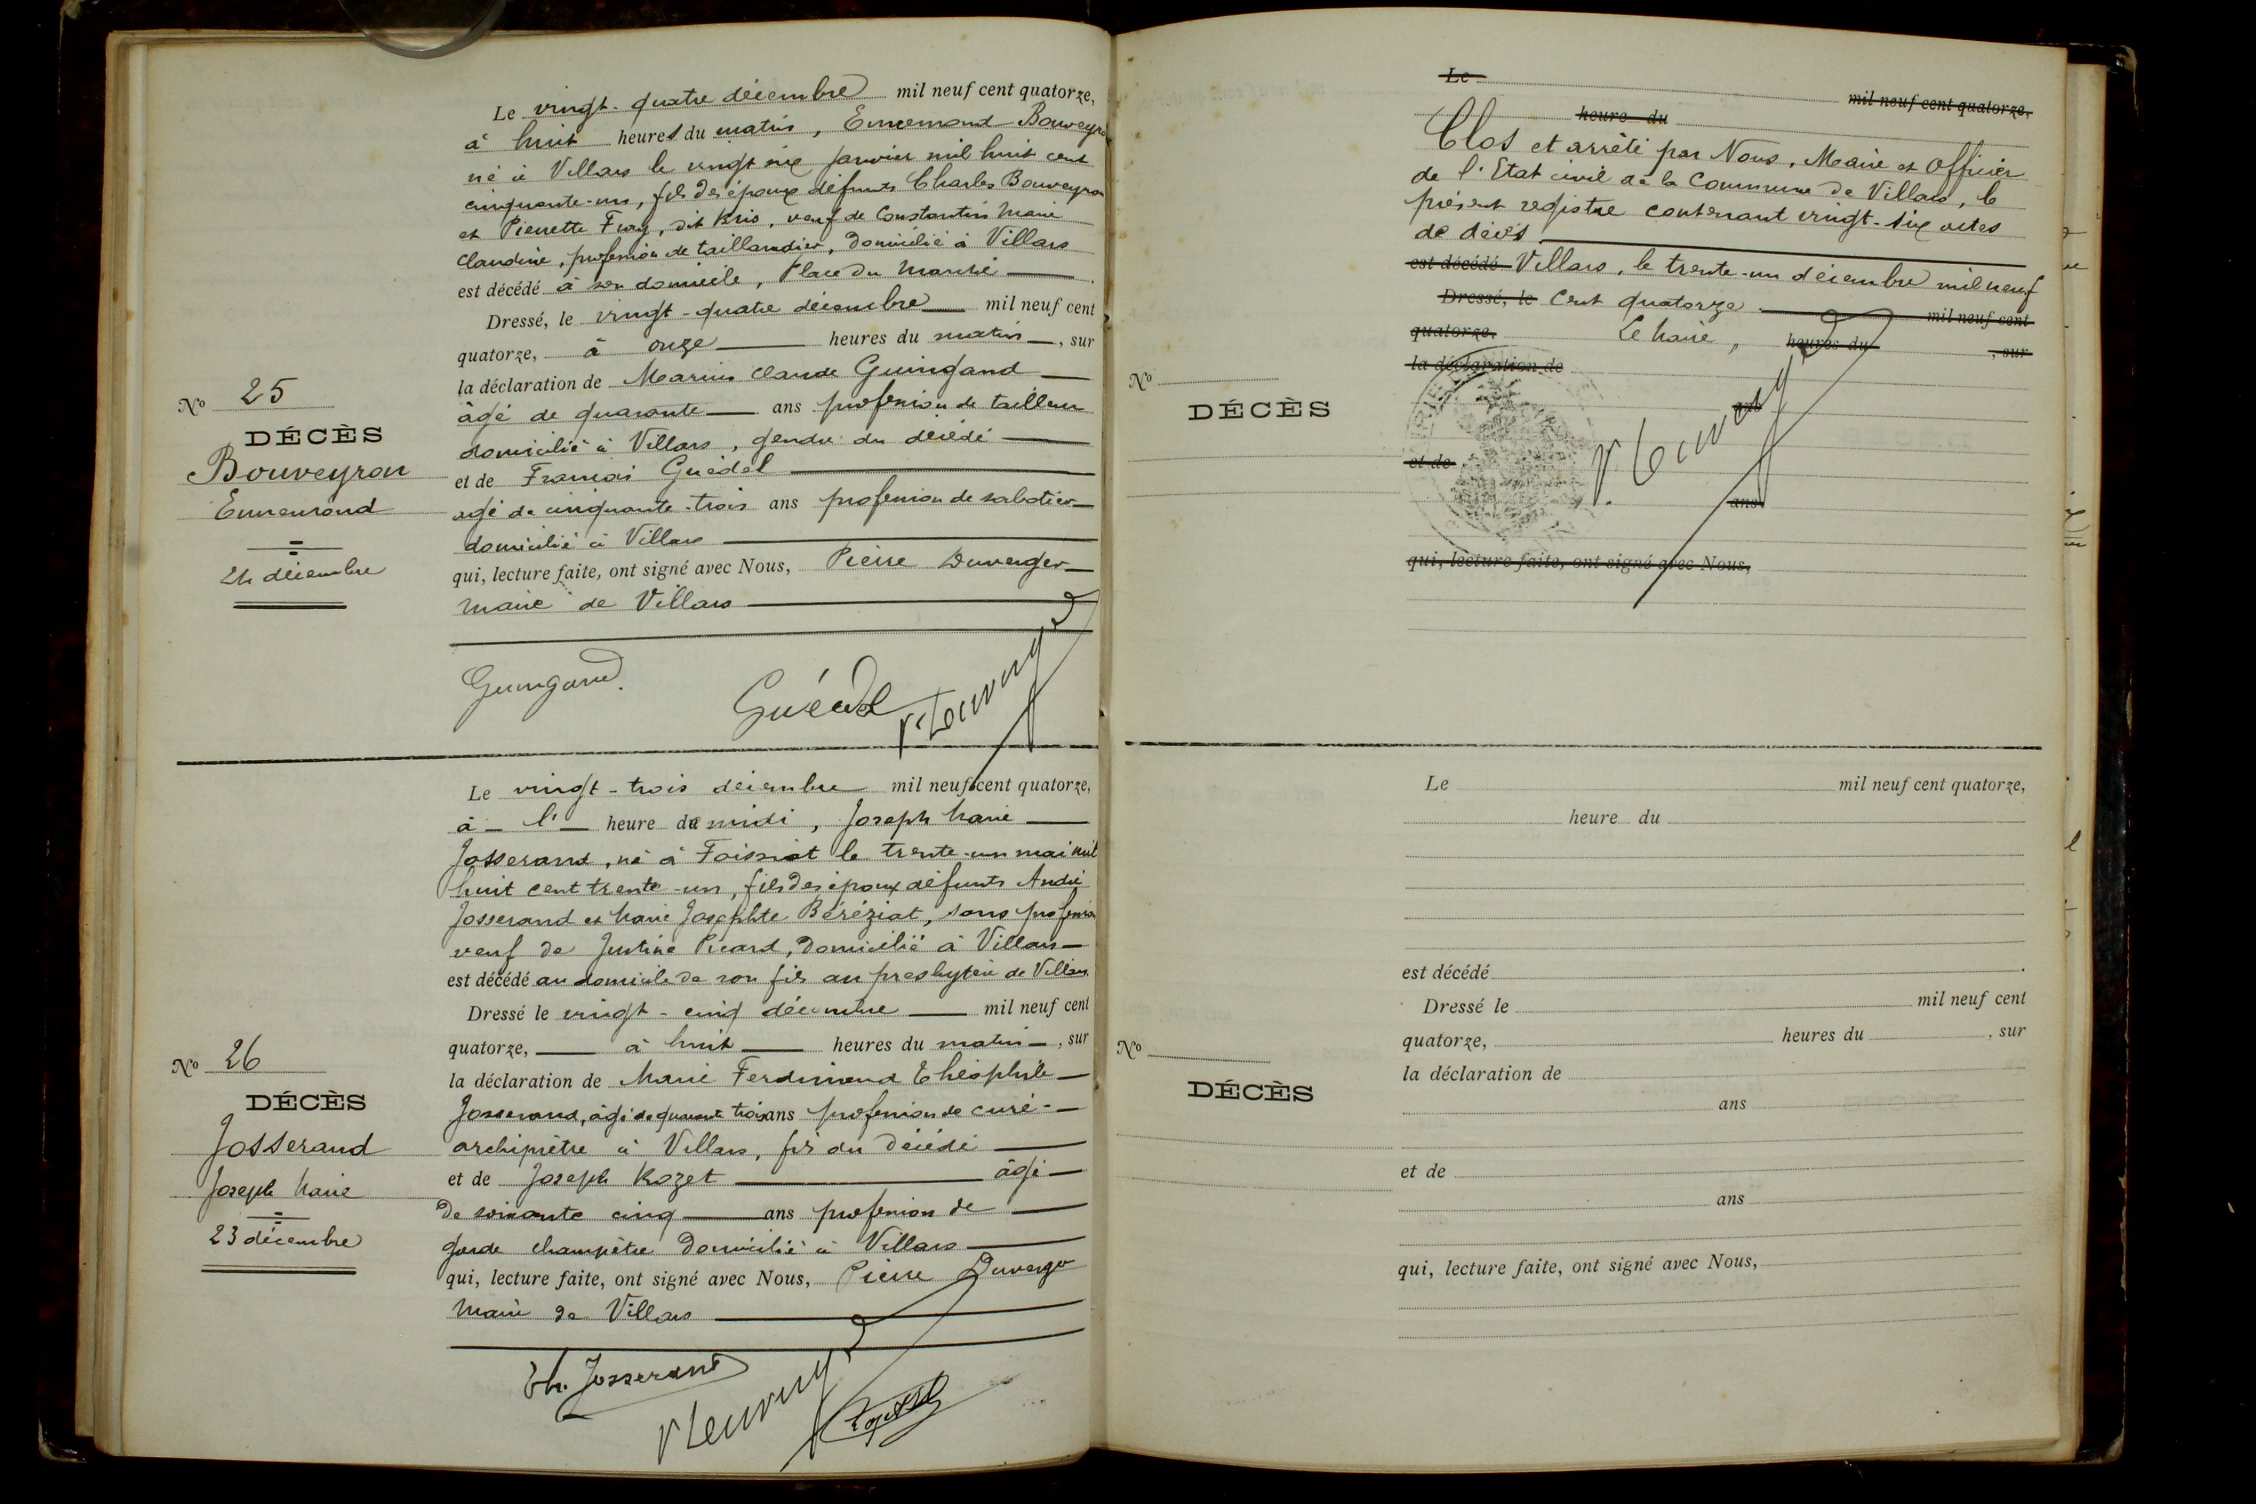 Le vingt-quatre décembre mil neuf cent quatorze,
à huit heures du matin, Ennemond Bouveyron
né à Villars le vingt six janvier mil huit cent
cinquante-un, fils des époux défunts Charles Bouveyron
et Pierrette Fray, dit Brio, veuf de Constantin Marie
Claudine, profession de taillandier, domicilié à Villars
est décédé à son domicile, Place du Marché
Dressé, le vingt-quatre décembre mil neuf cent
quatorze, à onze heures du matin, sur
la déclaration de Marius Claude Guingand
âgé de quarante ans profession de tailleur
domicilié à Villars, gendre du décédé
et de François Guédel
agé de cinquante-trois ans profession de sabotier
domicilié à Villars
qui, lecture faite, ont signé avec Nous, Pierre Duverger
Maire de Villars
No 25
DÉCÈS
Bouveyron
Ennemond
24 décembre
Guingand
Guédel
Le vingt-trois décembre mil neuf cent quatorze,
à l' heure de midi, Joseph Marie
Josserand, né à Foissiat le trente-un mai mil
huit cent trente-un, fils des époux défunts André
Josserand et Marie Josephte Béréziat, sans profession
veuf de Justine Picard, domicilié à Villars
est décédé au domicile de son fils au presbytère de Villars
Dressé le vingt-cinq décembre mil neuf cent
quatorze, à huit heures du matin, sur
la déclaration de Marie Ferdinand Théophile
Josserand, âgé de quarante trois ans profession de curé-
archiprêtre à Villars, fils du décédé
et de Joseph Rozet âgé
de soixante cinq ans profession de
garde champêtre domicilié à Villars
qui, lecture faite, ont signé avec Nous, Pierre Duverger
Maire de Villars
No 26
DÉCÈS
Josserand
Joseph Marie
23 décembre
Th. Josserand
Le mil neuf cent quatorze,
heure du
Clos et arrêté par Nous, Maire et Officier
de l'Etat civil de la Commune de Villars, le
présent registre contenant vingt-six actes
de décès
est décédé Villars, le trente-un décembre mil neuf
Dressé, le cent quatorze mil neuf cent
quatorze, Le Maire, heures du , sur
la déclaration de
ans
et de
ans
qui, lecture faite, ont signé avec Nous,
No
DÉCÈS
Le mil neuf cent quatorze,
heure du
est décédé
Dressé le mil neuf cent
quatorze, heures du , sur
la déclaration de
ans
et de
ans
qui, lecture faite, ont signé avec Nous,
No
DÉCÈS